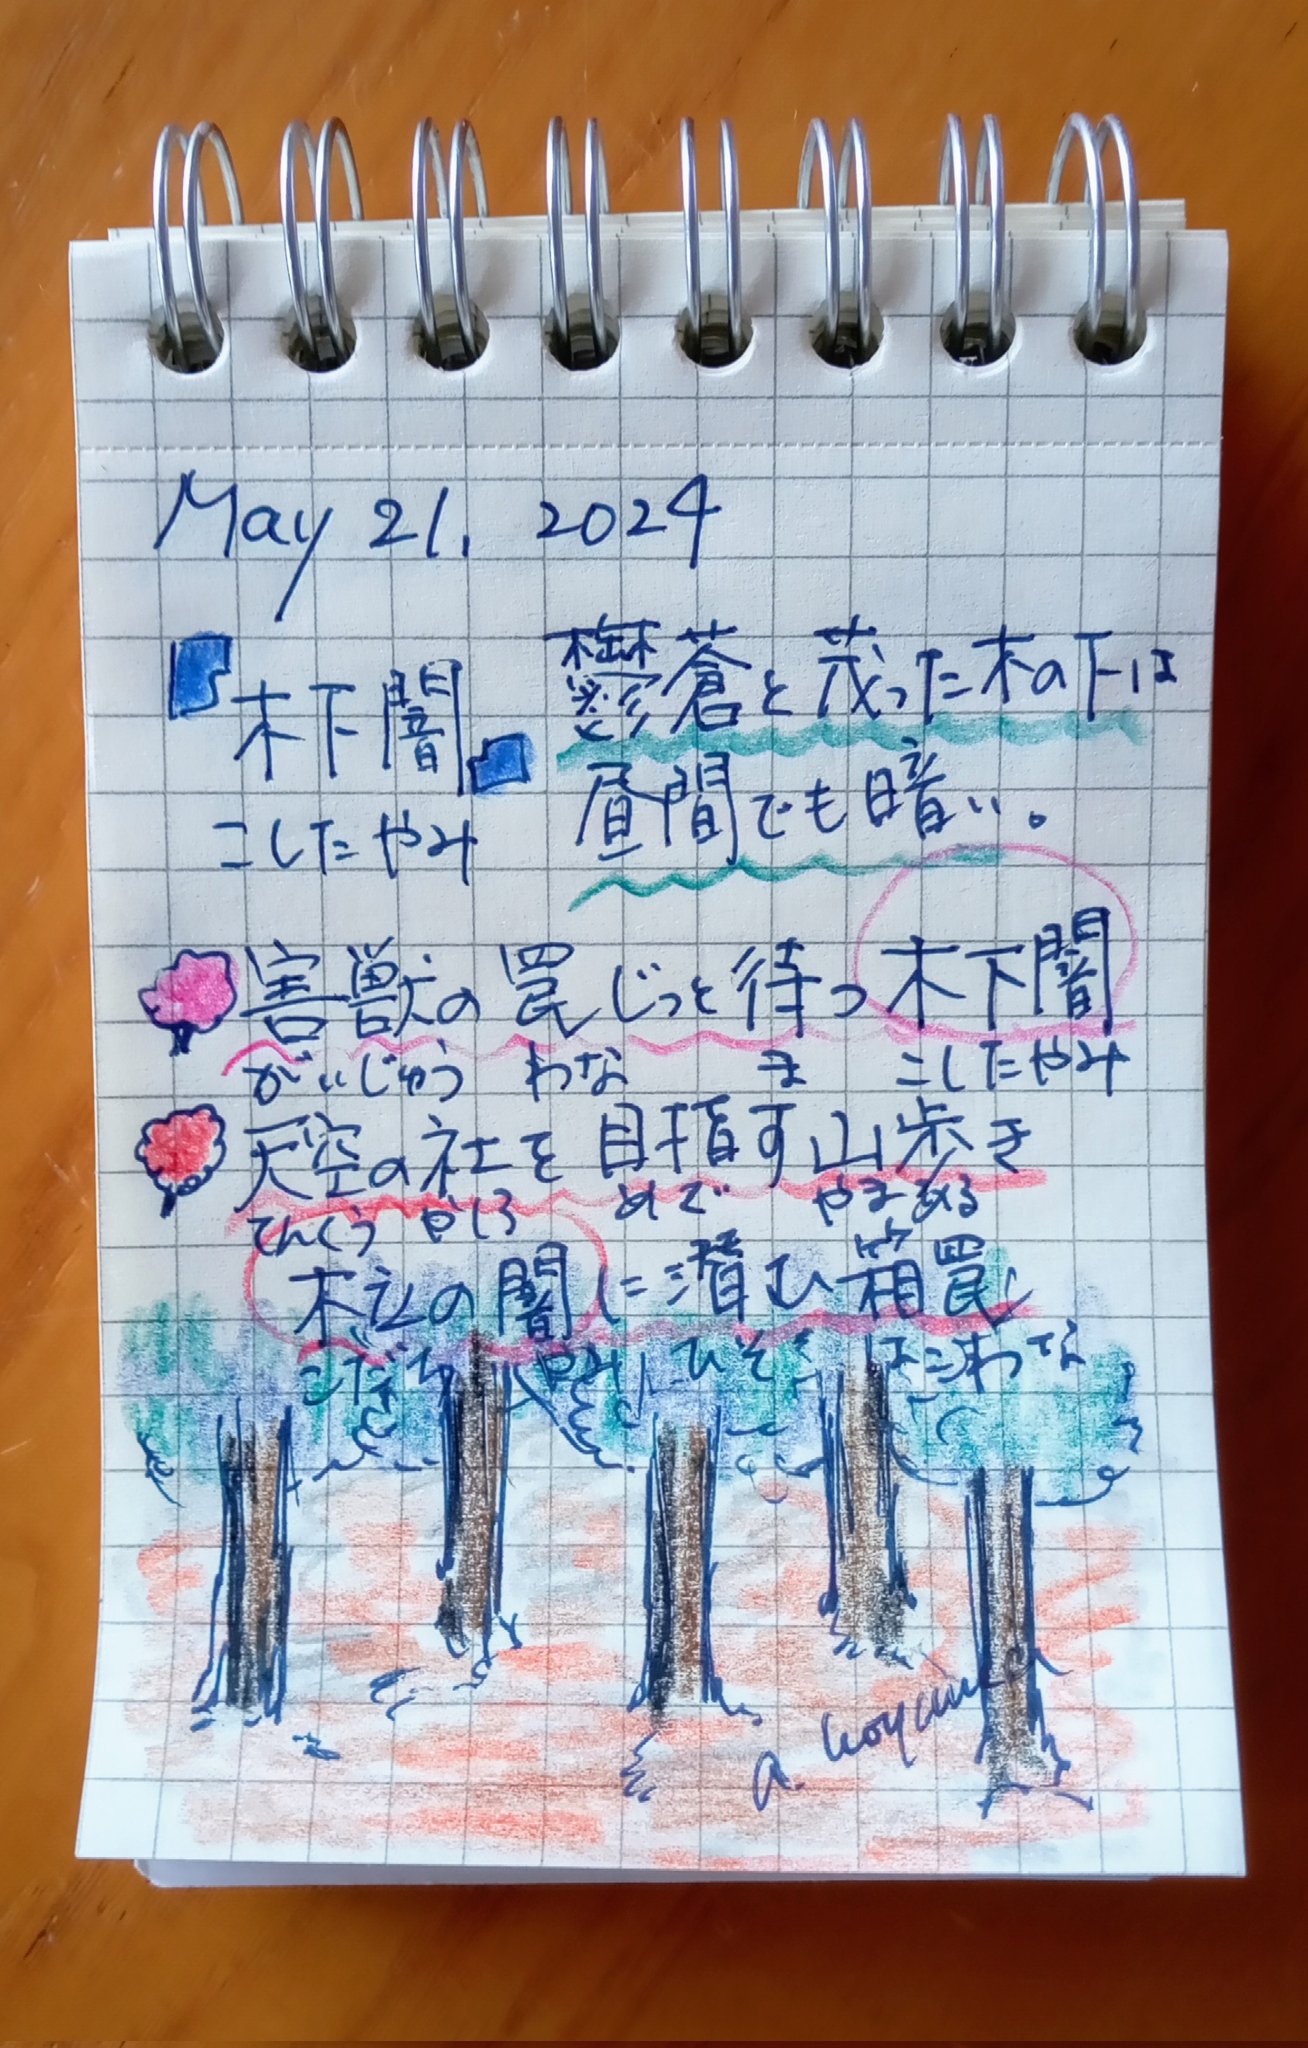 May 21, 2024
『木下闇』
こしたやみ
鬱蒼と茂った木の下は
昼間でも暗い。
害獣の罠じっと待つ木下闇
がいじゅう わな ま こしたやみ
天空の社を目指す山歩き
てんくう やしろ めざ やまある
木立の闇に潜む箱罠し
こだち やみ ひそむ はこわな